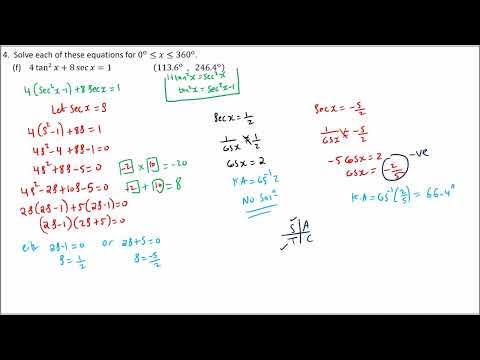 4. Solve each of these equations for 0° ≤ x ≤ 360°.
(f) 4 tan² x + 8 sec x = 1 (113.6° , 246.4°)
1+tan²x = sec²x
tan²x = sec²x-1
4(sec²x-1)+8secx=1
Let secx = S
4(S²-1)+8S=1
4S²-4+8S-1=0
4S²+8S-5=0
4S²-2S+10S-5=0
-2 × 10 = -20
-2 + 10 = 8
2S(2S-1)+5(2S-1)=0
(2S-1)(2S+5)=0
eit 2S-1=0 or 2S+5=0
S=1/2 S=-5/2
Secx=1/2
1/Cosx = 1/2
Cosx = 2
K.A=Cos⁻¹2
No Solⁿ
Secx=-5/2
1/Cosx = -5/2
-5Cosx=2
Cosx = -2/5 -ve
K.A=Cos⁻¹(2/5) = 66.4°
S A
T C